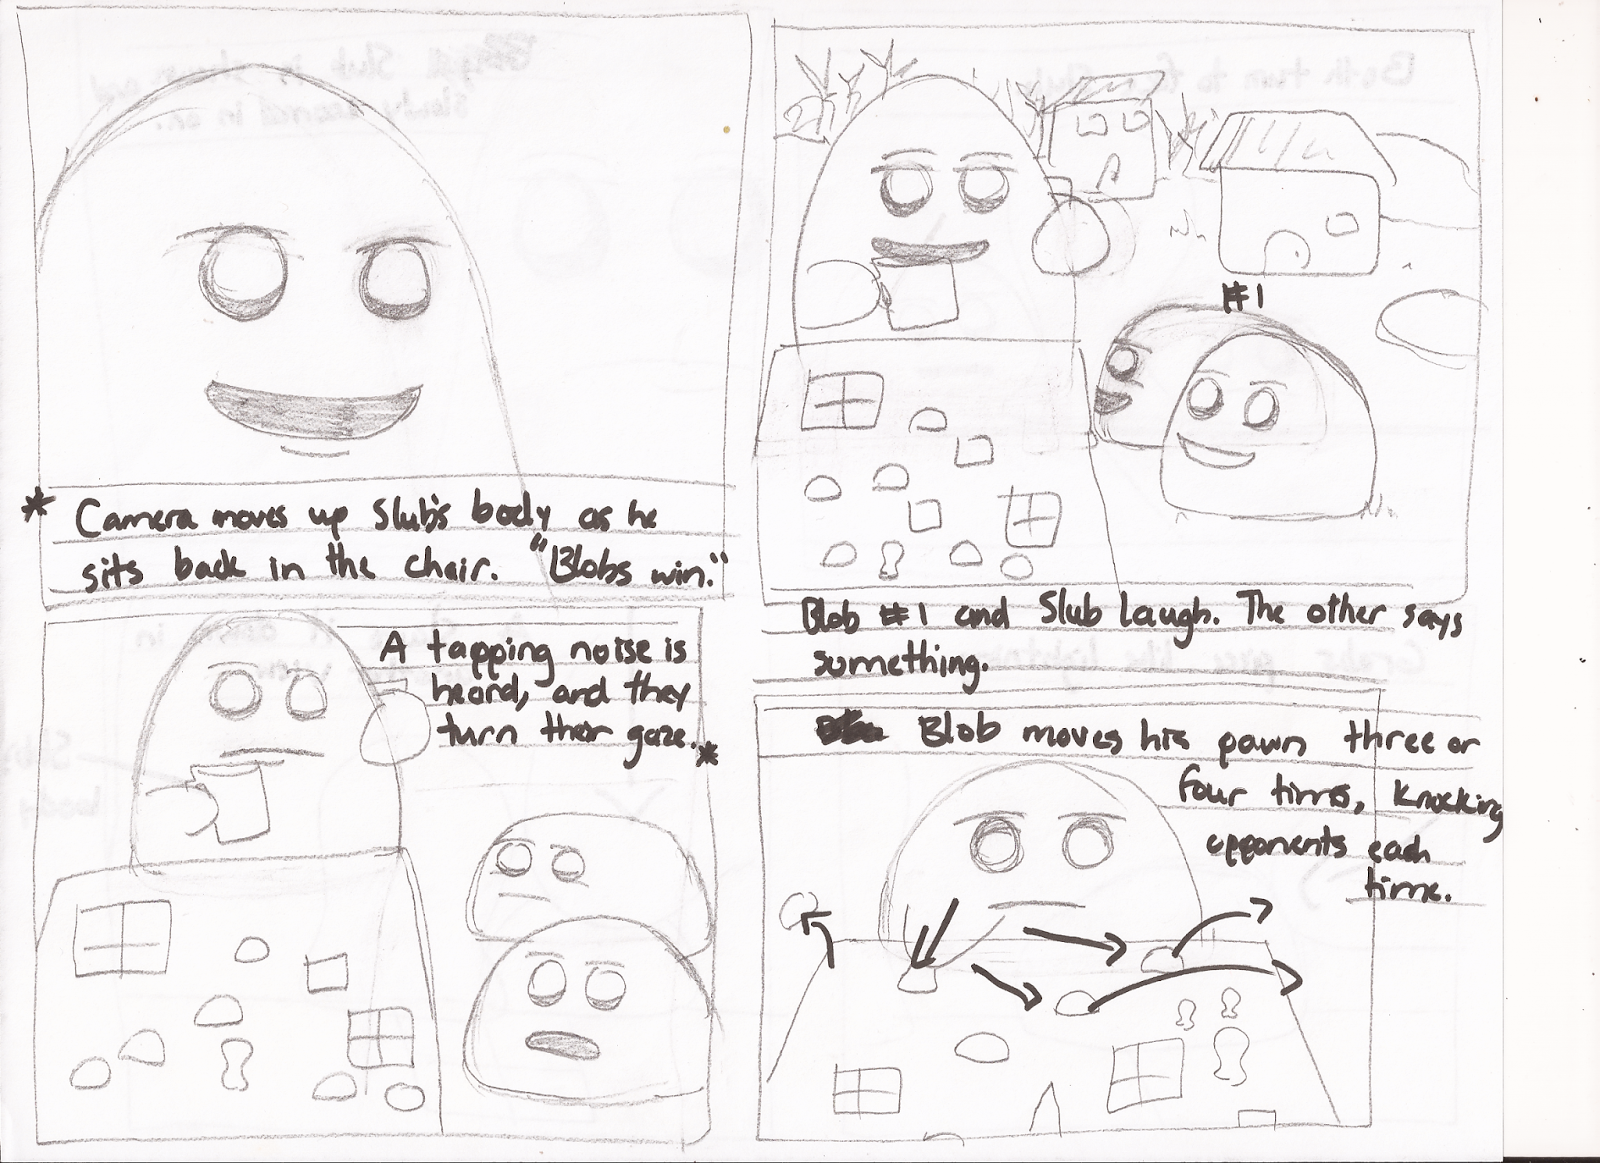 * Camera moves up Slub's body as he
sits back in the chair. "Blobs win."
#1
Blob #1 and Slub laugh. The other says
something.
A tapping noise is
heard, and they
turn their gaze. *
Blob moves his pawn three or
four times, knocking
opponents each
time.